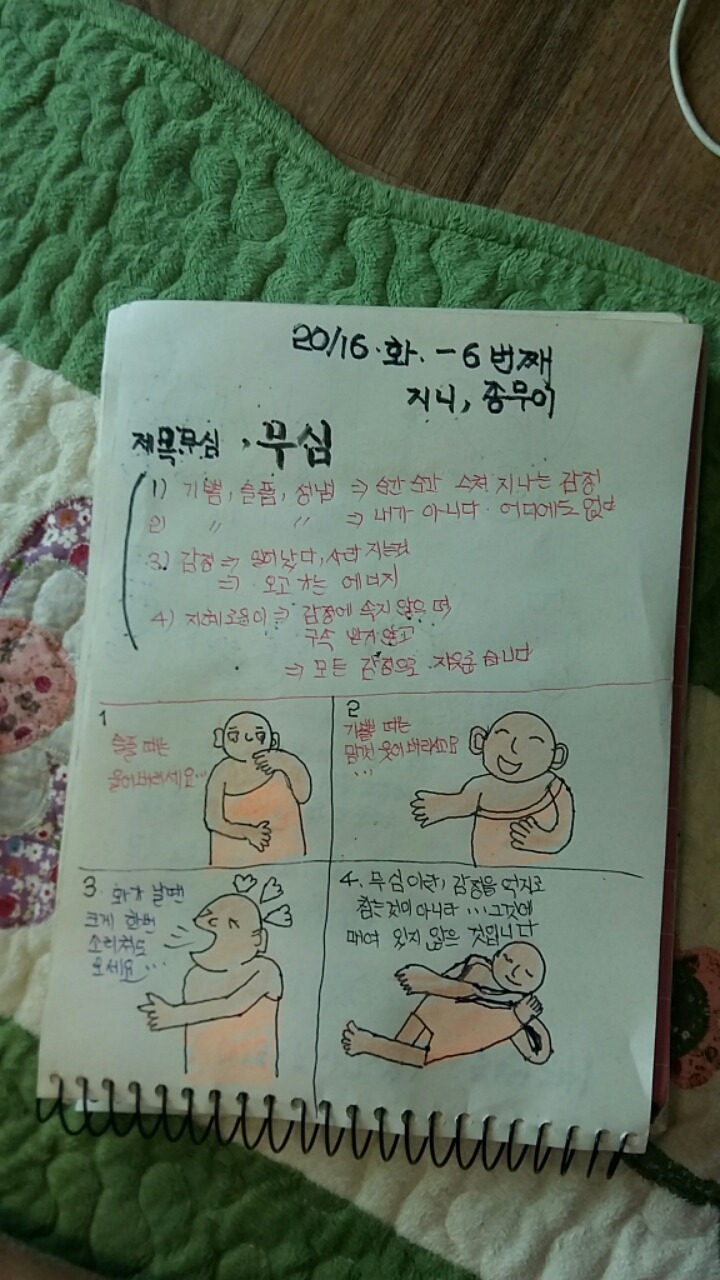 20/16.화. - 6번째
지니, 종무이
제목무심, 무심
1) 기쁨, 슬픔, 성냄 ⇒ 순간 순간 스쳐 지나는 감정
2) 〃 〃 ⇒ 내가 아니다. 어디에도 없다
3) 감정 ⇒ 일어났다, 사라지는것
⇒ 오고 가는 에너지
4) 지혜로운이 ⇒ 감정에 속지 않으며
구속 받지 않고
⇒ 모든 감정으로 자유롭습니다
1
슬플 때는
울어버리세요...
2
기쁠 때는
맘껏 웃어버리고요
...
3. 화가 날땐
크게 한번
소리쳐도
보세요...
4. 무심이란, 감정을 억지로
참는것이 아니라 ...그것에
매여 있지 않은 것입니다